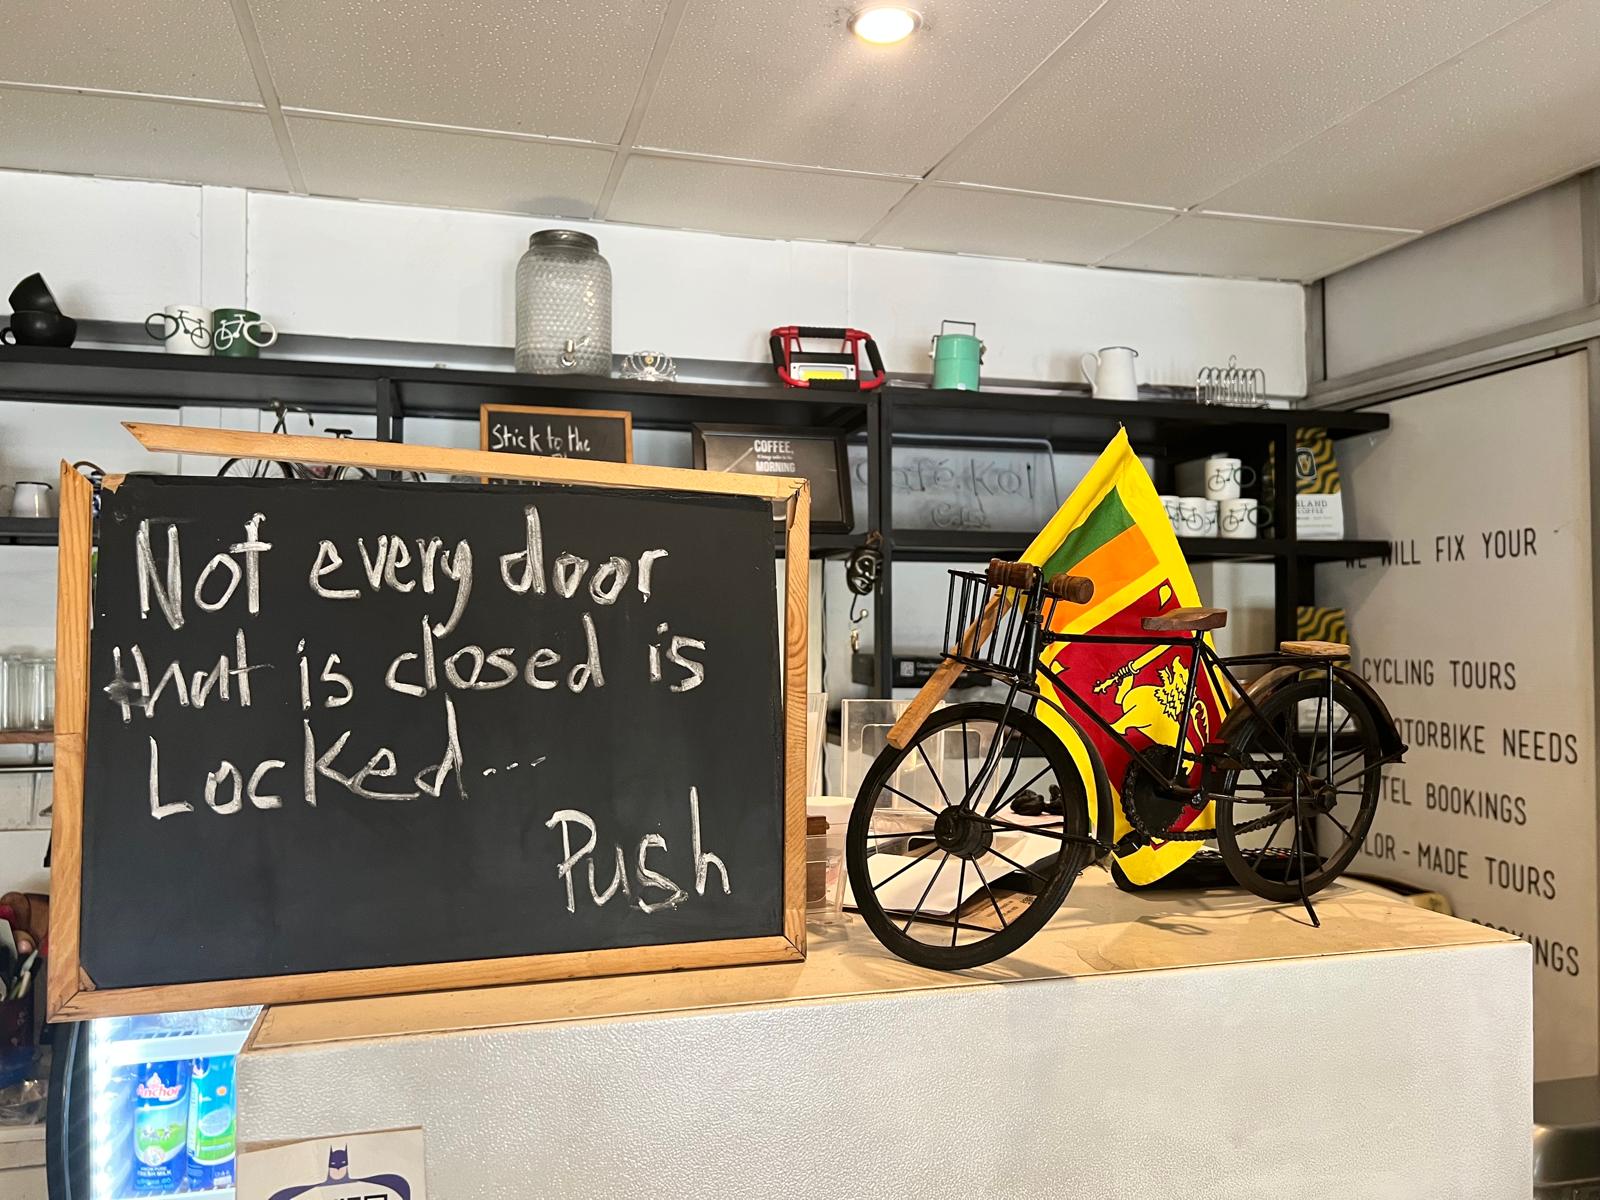 Not every door
that is closed is
Locked...
Push
Stick to the
COFFEE,
MORNING
Café Kol
WILL FIX YOUR
CYCLING TOURS
OTORBIKE NEEDS
TEL BOOKINGS
LOR-MADE TOURS
OKINGS
Anchor
FRESH MILK